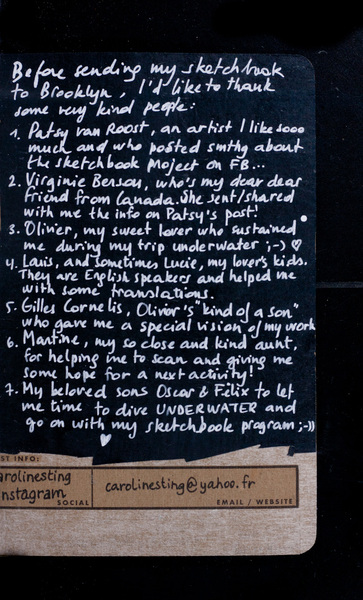 Before sending my sketchbook
to Brooklyn, I'd like to thank
some very kind people:
1. Patsy van Roost, an artist I like sooo
much and who posted smthg about
the sketchbook Project on FB...
2. Virginie Bensau, who's my dear dear
friend from Canada. She sent/shared
with me the info on Patsy's post!
3. Olivier, my sweet lover who sustained
me during my trip underwater ;-) ♡
4. Louis, and sometimes Lucie, my lover's kids.
They are English speakers and helped me
with some translations.
5. Gilles Cornelis, Olivier's "kind of a son"
who gave me a special vision of my work
6. Martine, my so close and kind aunt,
for helping me to scan and giving me
some hope for a next activity!
7. My beloved sons Oscar & Félix to let
me time to dive UNDERWATER and
go on with my sketchbook program ;-))
♥
ST INFO:
arolinesting
nstagram
SOCIAL
carolinesting@yahoo.fr
EMAIL / WEBSITE